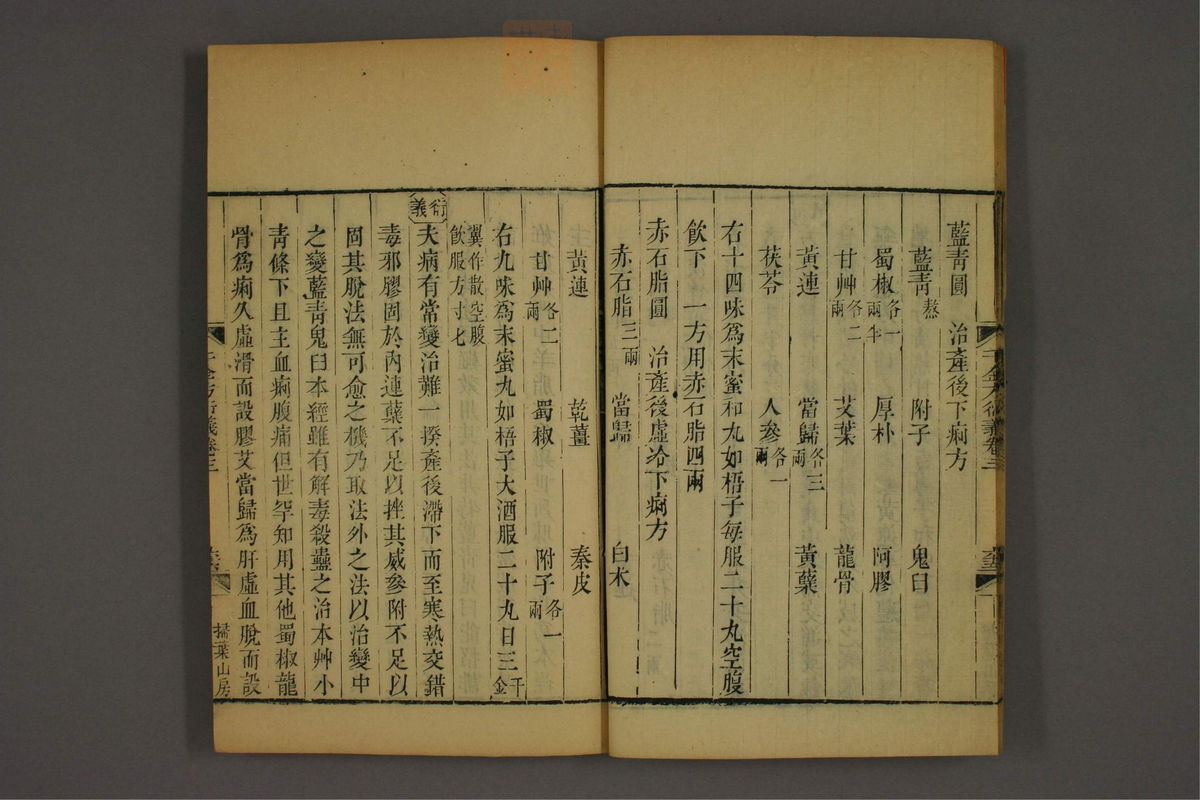 藍青圓　治產後下痢方
藍青熬　附子　鬼臼
蜀椒各一兩半　厚朴　阿膠
甘艸各二兩　艾葉　龍骨
黃連　當歸各三兩　黃蘗
茯苓　人參各一兩
右十四味爲末蜜和丸如梧子每服二十丸空腹
飲下　一方用赤石脂四兩
赤石脂圓　治產後虛冷下痢方
赤石脂三兩　當歸　白朮
黃連　乾薑　秦皮
甘艸各二兩　蜀椒　附子各一兩
右九味爲末蜜丸如梧子大酒服二十丸日三千金
翼作散空腹飲服方寸匕
衍義
夫病有常變治難一揆產後滯下而至寒熱交錯
毒邪膠固於內連蘗不足以挫其威參附不足以
固其脫法無可愈之機乃取法外之法以治變中
之變藍青鬼臼本經雖有解毒殺蠱之治本艸小
青條下且主血痢腹痛但世罕知用其他蜀椒龍
骨爲痢久虛滑而設膠艾當歸爲肝虛血脫而設
千金方衍義卷三
掃葉山房